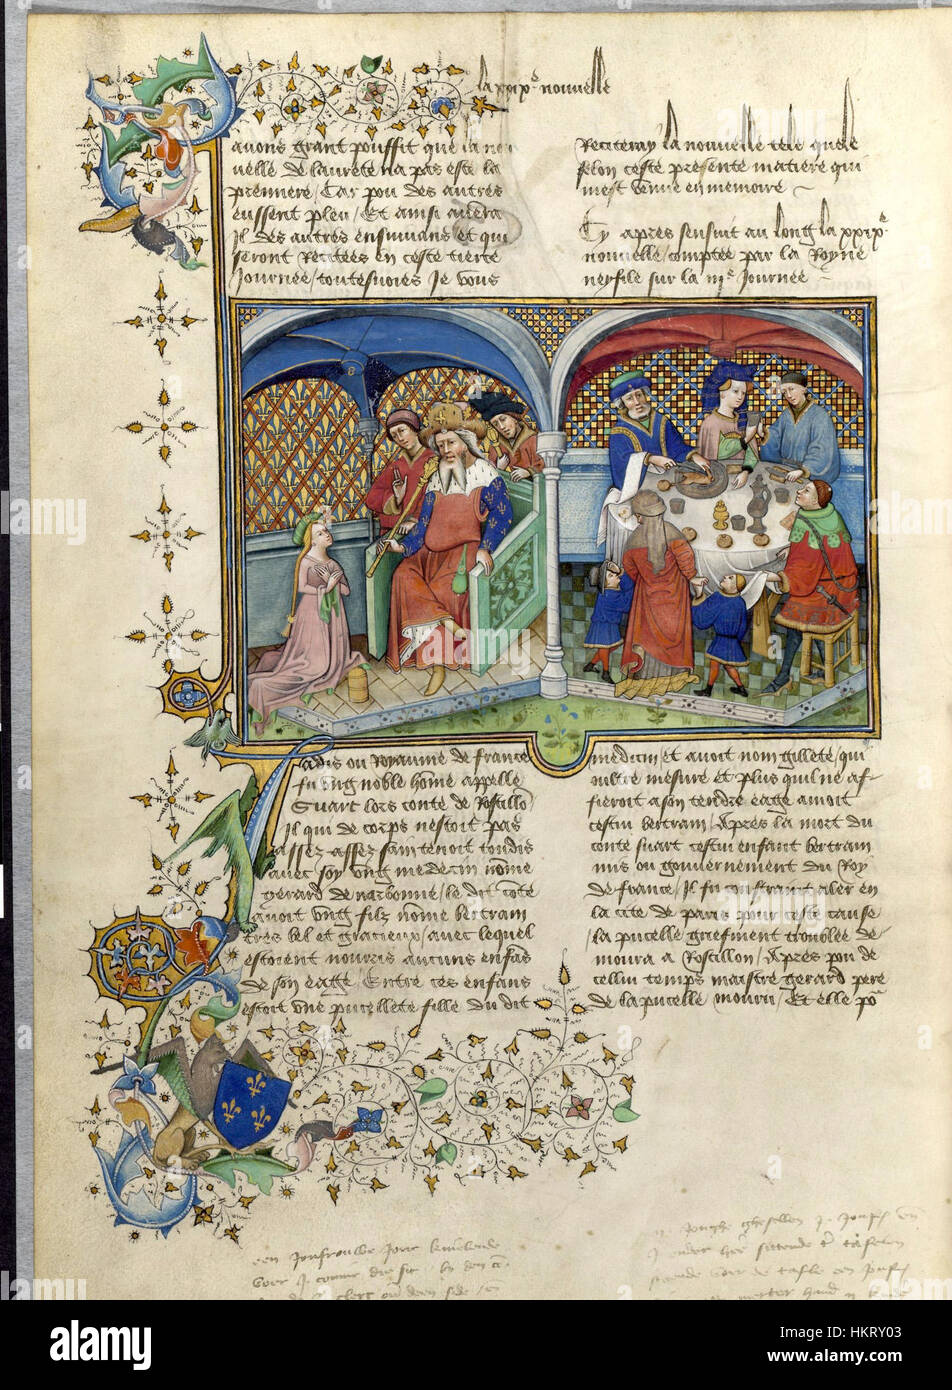 la xxixe nouvelle
avons grant pouffit que la nou
velle de laurete na pas este la
premiere / Car pou des autres
eussent pleu / Et ainsi avera
Il des autres ensuivans et qui
seront Recitees en ceste tierce
Journee / toutesvoies Je vous
Reciteray la nouvelle tele quelle
selon ceste presente matiere qui
mest venue en memoire
Cy apres sensuit au long la xxixe
nouvelle / comptee par la Royne
neyfile sur la iije Journee
Jadis ou Royaume de france
fu ung noble home appelle
Suart lors conte de Rossillo
Il qui de corps nestoit pas
assez sain tenoit tondis
avec soy ung medecin nome
Gerard de narbonne / le dit cote
avoit ung filz nome bertram
tres bel et gracieux / avec lequel
estoient nourris aucuns enfas
de son eage / Entre ces enfans
estoit une pucellete fille du dit
medicin et avoit nom gillete / qui
oultre mesure et plus quil ne af-
fieroit a son tendre eage amoit
cestui bertram / Apres la mort du
conte suart cestui enfant bertram
mis ou gouvernement du Roy
de france / Il fu constraint aler en
la cite de paris pour ceste cause
la pucelle griefment troublee de-
moura a Rossillon / Apres pou de
cellui temps maistre gerard pere
de la pucelle mouru / Et elle po
een Jonfrouwe
voer
clerc
ghesellen
voer de tafle een
hand
alamy
Image ID: HKRY03
www.alamy.com